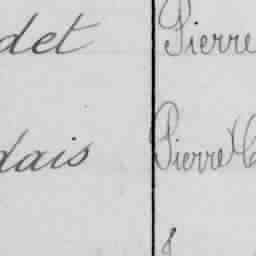 det Pierre
dais Pierre